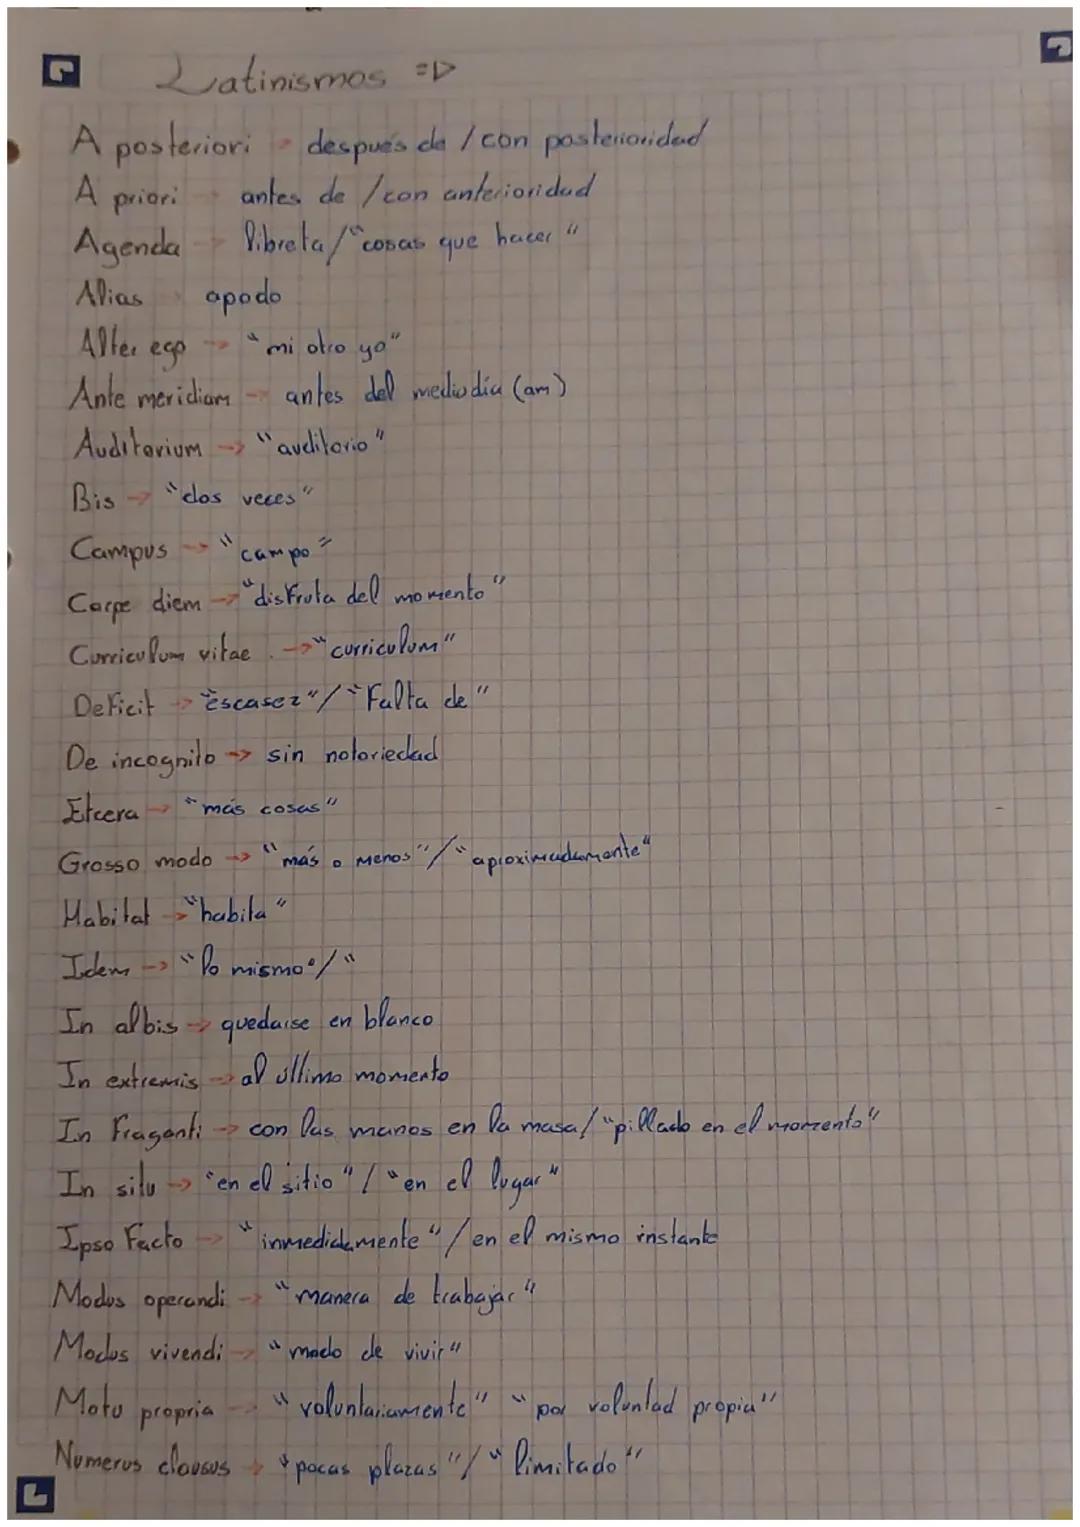 Latinismos =D
A posteriori → después de / con posterioridad
A priori → antes de / con anterioridad
Agenda → libreta / "cosas que hacer"
Alias → apodo
Alter ego → "mi otro yo"
Ante meridiam → antes del mediodía (am)
Auditorium → "auditorio"
Bis → "dos veces"
Campus → "campo"
Carpe diem → "disfruta del momento"
Curriculum vitae . → "curriculum"
Deficit → "escasez" / "Falta de"
De incognito → sin notoriedad
Etcera → "más cosas"
Grosso modo → "más o menos" / "aproximadamente"
Habitat → "habita"
Idem → "lo mismo" / "
In albis → quedarse en blanco
In extremis → al último momento
In Fraganti → con las manos en la masa / "pillado en el momento"
In situ → "en el sitio" / "en el lugar"
Ipso Facto → "inmediatamente" / en el mismo instante
Modus operandi → "manera de trabajar"
Modus vivendi → "modo de vivir"
Motu propria → "voluntariamente" "por voluntad propia"
Numerus clausus → "pocas plazas" / "limitado"